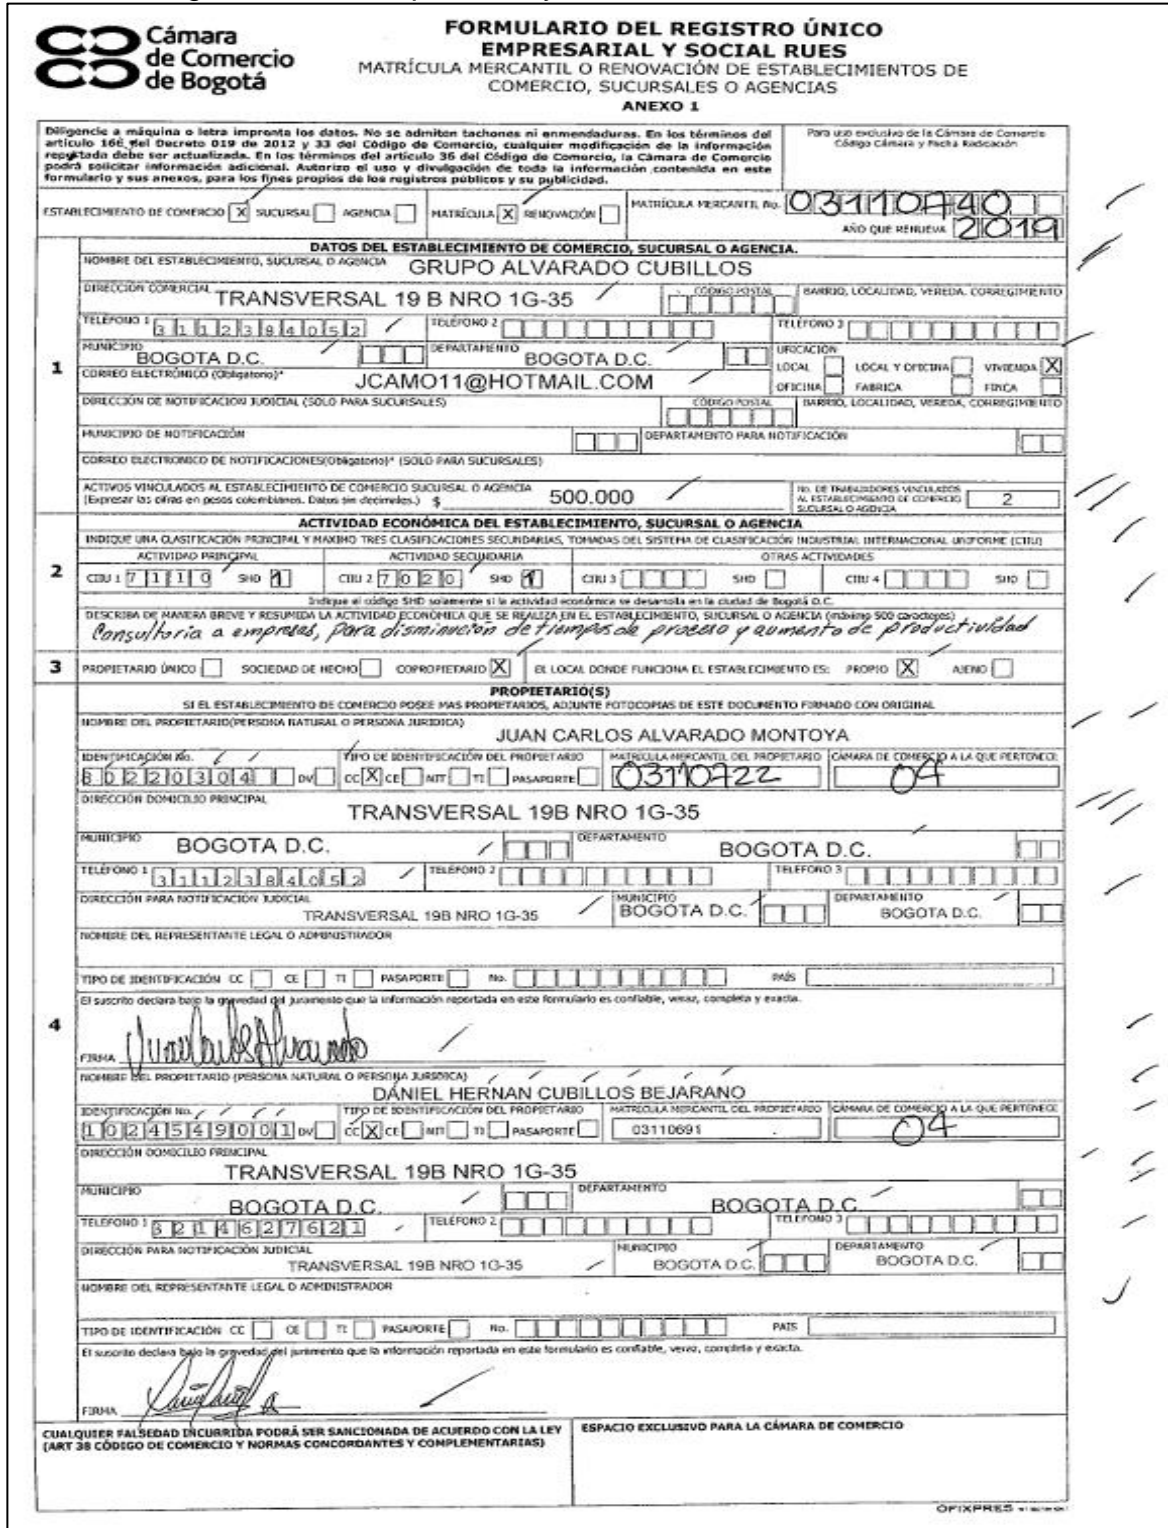 Cámara
de Comercio
de Bogotá
FORMULARIO DEL REGISTRO ÚNICO
EMPRESARIAL Y SOCIAL RUES
MATRÍCULA MERCANTIL O RENOVACIÓN DE ESTABLECIMIENTOS DE
COMERCIO, SUCURSALES O AGENCIAS
ANEXO 1
Diligencie a máquina o letra imprenta los datos. No se admiten tachones ni enmendaduras. En los términos del
artículo 166 del Decreto 019 de 2012 y 33 del Código de Comercio, cualquier modificación de la información
reportada debe ser actualizada. En los términos del artículo 36 del Código de Comercio, la Cámara de Comercio
podrá solicitar información adicional. Autorizo el uso y divulgación de toda la información contenida en este
formulario y sus anexos, para los fines propios de los registros públicos y su publicidad.
Para uso exclusivo de la Cámara de Comercio
Código Cámara y Fecha Radicación
ESTABLECIMIENTO DE COMERCIO X SUCURSAL AGENCIA MATRÍCULA X RENOVACIÓN MATRÍCULA MERCANTIL No. 03110740
AÑO QUE RENUEVA 2019
DATOS DEL ESTABLECIMIENTO DE COMERCIO, SUCURSAL O AGENCIA.
NOMBRE DEL ESTABLECIMIENTO, SUCURSAL O AGENCIA GRUPO ALVARADO CUBILLOS
DIRECCIÓN COMERCIAL TRANSVERSAL 19 B NRO 1G-35 CÓDIGO POSTAL BARRIO, LOCALIDAD, VEREDA, CORREGIMIENTO
TELÉFONO 1 3112384052 TELÉFONO 2 TELÉFONO 3
1
MUNICIPIO BOGOTA D.C. DEPARTAMENTO BOGOTA D.C. UBICACIÓN
LOCAL LOCAL Y OFICINA VIVIENDA X
CORREO ELECTRÓNICO (Obligatorio)* JCAMO11@HOTMAIL.COM OFICINA FABRICA FINCA
DIRECCIÓN DE NOTIFICACION JUDICIAL (SOLO PARA SUCURSALES) CÓDIGO POSTAL BARRIO, LOCALIDAD, VEREDA, CORREGIMIENTO
MUNICIPIO DE NOTIFICACIÓN DEPARTAMENTO PARA NOTIFICACIÓN
CORREO ELECTRONICO DE NOTIFICACIONES(Obligatorio)* (SOLO PARA SUCURSALES)
ACTIVOS VINCULADOS AL ESTABLECIMIENTO DE COMERCIO SUCURSAL O AGENCIA
(Expresar las cifras en pesos colombianos. Datos sin decimales.) $ 500.000
No. DE TRABAJADORES VINCULADOS
AL ESTABLECIMIENTO DE COMERCIO
SUCURSAL O AGENCIA 2
ACTIVIDAD ECONÓMICA DEL ESTABLECIMIENTO, SUCURSAL O AGENCIA
INDIQUE UNA CLASIFICACIÓN PRINCIPAL Y MAXIMO TRES CLASIFICACIONES SECUNDARIAS, TOMADAS DEL SISTEMA DE CLASIFICACIÓN INDUSTRIAL INTERNACIONAL UNIFORME (CIIU)
ACTIVIDAD PRINCIPAL ACTIVIDAD SECUNDARIA OTRAS ACTIVIDADES
2
CIIU 1 7110 SHD 1 CIIU 2 7020 SHD 1 CIIU 3 SHD CIIU 4 SHD
Indique el código SHD solamente si la actividad económica se desarrolla en la ciudad de Bogotá D.C.
DESCRIBA DE MANERA BREVE Y RESUMIDA LA ACTIVIDAD ECONÓMICA QUE SE REALIZA EN EL ESTABLECIMIENTO, SUCURSAL O AGENCIA (máximo 500 caracteres)
Consultoria a empresas, para disminución de tiempos de proceso y aumento de productividad
3 PROPIETARIO ÚNICO SOCIEDAD DE HECHO COPROPIETARIO X EL LOCAL DONDE FUNCIONA EL ESTABLECIMIENTO ES: PROPIO X AJENO
PROPIETARIO(S)
SI EL ESTABLECIMIENTO DE COMERCIO POSEE MAS PROPIETARIOS, ADJUNTE FOTOCOPIAS DE ESTE DOCUMENTO FIRMADO CON ORIGINAL
NOMBRE DEL PROPIETARIO(PERSONA NATURAL O PERSONA JURIDICA)
JUAN CARLOS ALVARADO MONTOYA
IDENTIFICACIÓN No. TIPO DE IDENTIFICACIÓN DEL PROPIETARIO MATRICULA MERCANTIL DEL PROPIETARIO CÁMARA DE COMERCIO A LA QUE PERTENECE
80220304 DV CC X CE NIT TI PASAPORTE 03110722 04
DIRECCIÓN DOMICILIO PRINCIPAL
TRANSVERSAL 19B NRO 1G-35
MUNICIPIO BOGOTA D.C. DEPARTAMENTO BOGOTA D.C.
TELÉFONO 1 3112384052 TELÉFONO 2 TELEFONO 3
DIRECCIÓN PARA NOTIFICACIÓN JUDICIAL TRANSVERSAL 19B NRO 1G-35 MUNICIPIO BOGOTA D.C. DEPARTAMENTO BOGOTA D.C.
NOMBRE DEL REPRESENTANTE LEGAL O ADMINISTRADOR
TIPO DE IDENTIFICACIÓN CC CE TI PASAPORTE No. PAÍS
El suscrito declara bajo la gravedad del juramento que la información reportada en este formulario es confiable, veraz, completa y exacta.
4
FIRMA Juan Carlos Alvarado
NOMBRE DEL PROPIETARIO (PERSONA NATURAL O PERSONA JURIDICA)
DANIEL HERNAN CUBILLOS BEJARANO
IDENTIFICACIÓN No. TIPO DE IDENTIFICACIÓN DEL PROPIETARIO MATRICULA MERCANTIL DEL PROPIETARIO CÁMARA DE COMERCIO A LA QUE PERTENECE
1024549001 DV CC X CE NIT TI PASAPORTE 03110691 04
DIRECCIÓN DOMICILIO PRINCIPAL
TRANSVERSAL 19B NRO 1G-35
MUNICIPIO BOGOTA D.C. DEPARTAMENTO BOGOTA D.C.
TELEFONO 1 3214627621 TELÉFONO 2 TELEFONO 3
DIRECCIÓN PARA NOTIFICACIÓN JUDICIAL TRANSVERSAL 19B NRO 1G-35 MUNICIPIO BOGOTA D.C. DEPARTAMENTO BOGOTA D.C.
NOMBRE DEL REPRESENTANTE LEGAL O ADMINISTRADOR
TIPO DE IDENTIFICACIÓN CC CE TI PASAPORTE No. PAIS
El suscrito declara bajo la gravedad del juramento que la información reportada en este formulario es confiable, veraz, completa y exacta.
FIRMA
CUALQUIER FALSEDAD INCURRIDA PODRÁ SER SANCIONADA DE ACUERDO CON LA LEY
(ART 38 CÓDIGO DE COMERCIO Y NORMAS CONCORDANTES Y COMPLEMENTARIAS)
ESPACIO EXCLUSIVO PARA LA CÁMARA DE COMERCIO
OFIXPRES